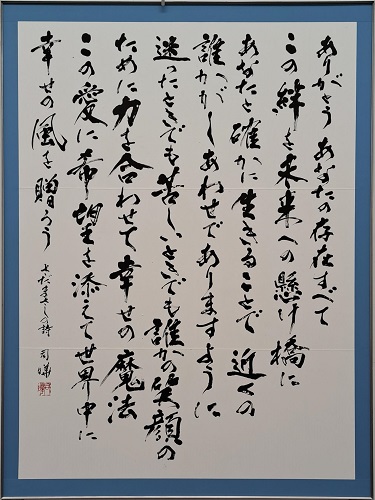 ありがとう あなたの存在すべて
この絆を未来への懸け橋に
あなたと確かに生きることで 近くの
誰かがしあわせでありますように
迷ったときでも苦しいときでも誰かの笑顔の
ために力を合わせて 幸せの魔法
この愛に希望を添えて世界中に
幸せの風を贈ろう
の詩